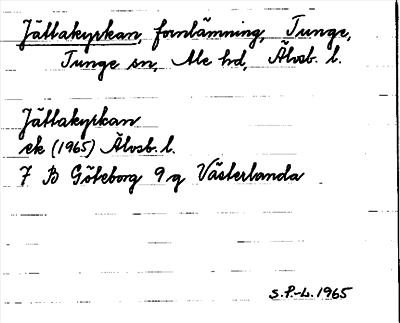 Jättakyrkan, fornlämning, Tunge,
Tunge sn, Ale hd, Älvsb. l.
Jättakyrkan
ek (1965) Älvsb. l.
7 B Göteborg 9 g Västerlanda
S.P.-L. 1965